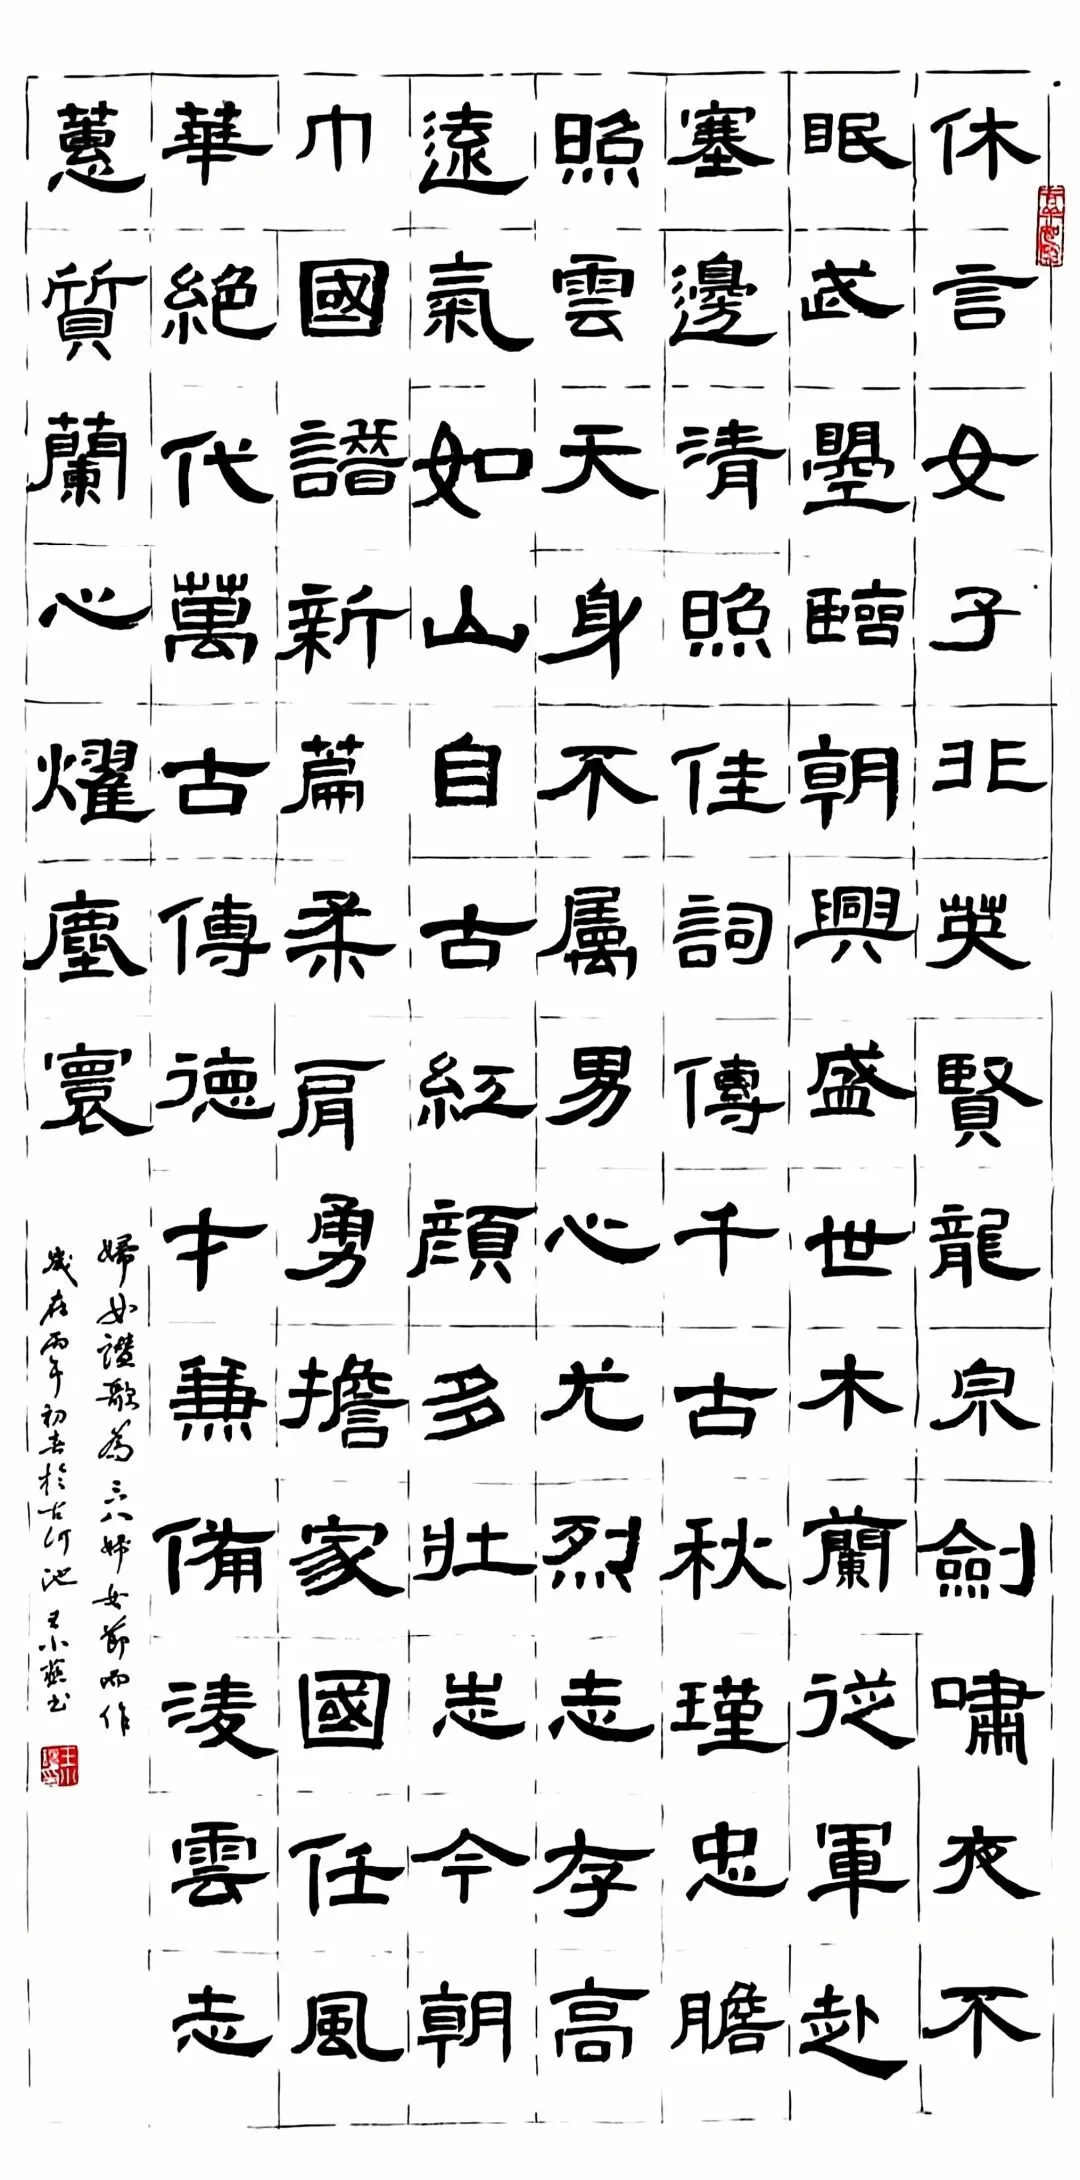 休言女子非英賢龍泉劍嘯夜不
眠武曌臨朝興盛世木蘭從軍赴
塞邊清照佳詞傳千古秋瑾忠膽
照雲天身不屬男心尤烈志存高
遠氣如山自古紅顔多壯志今朝
巾國譜新篇柔肩勇擔家國任風
華絕代萬古傳德才兼備淩雲志
蕙質蘭心耀塵寰
婦女讚歌為三八婦女節而作
歲在丙午初春於古河池王小燕书